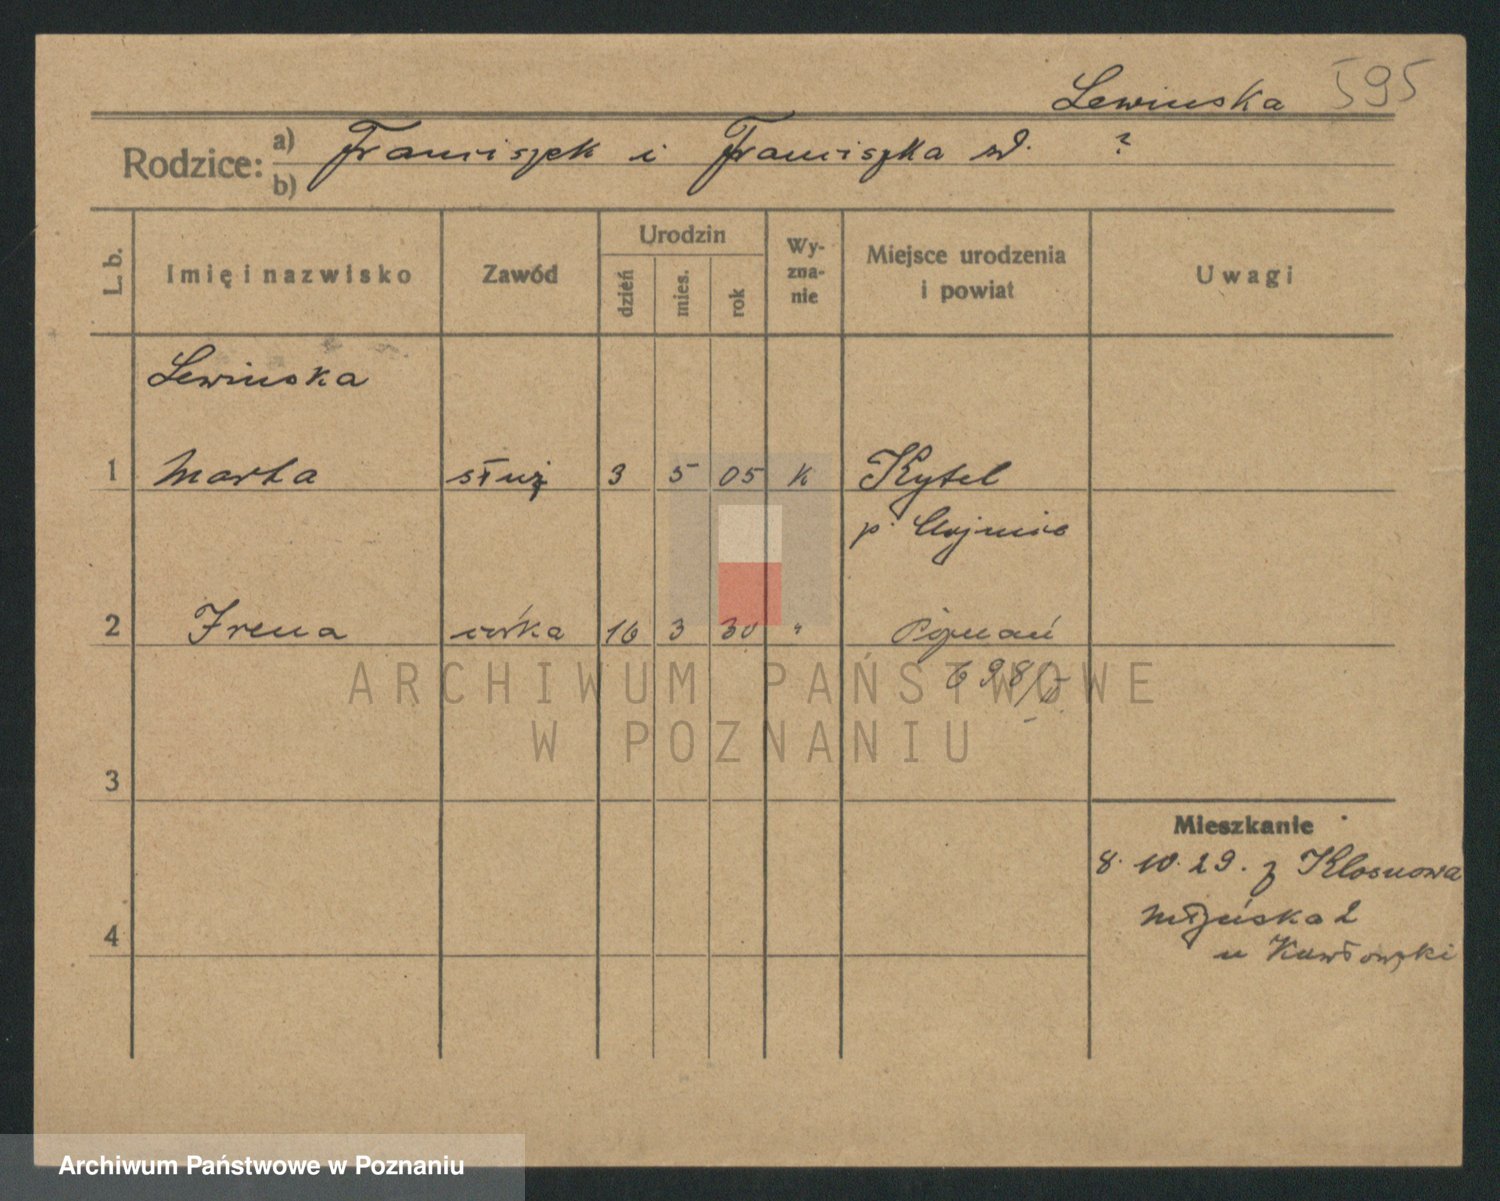 Lewinska 595
Rodzice: a) Franciszek i Franciszka zd. ?
b)
L. b. Imię i nazwisko Zawód Urodzin dzień mies. rok Wyznanie Miejsce urodzenia i powiat Uwagi
Lewinska
1 Marta służ 3 5 05 K Rytel
p. Chojnice
2 Irena córka 16 3 30 " Poznań
698/IV
3
Mieszkanie
8. 10. 29. z Klosnowa
4 Młyńska 2
u Kawłowski
ARCHIWUM PAŃSTWOWE
W POZNANIU
Archiwum Państwowe w Poznaniu